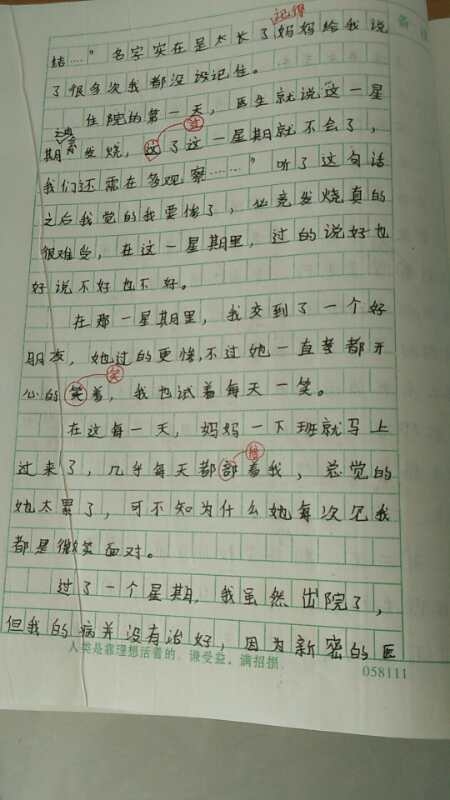 记得
结……”名字实在是太长了妈妈给我说
了很多次我都没设记住。
住院的第一天，医生就说这一星
过
期 发烧，过了这一星期就不会了，
我们还需在多观察……”听了这句话
之后我觉的我要惨了，必竞发烧真的
很难受，在这一星期里，过的说好也
好说不好也不好。
在那一星期里，我交到了一个好
朋友，她过的更惨，不过她一直都开
笑
心的笑着，我也试着每天一笑。
在这每一天，妈妈一下班就马上
过来了，几乎每天都部着我，总觉的
她太累了，可不知为什么她每次见我
都是微笑面对。
过了一个星期，我虽然出院了，
但我的病并没有治好，因为新密的医
人类是靠理想活着的。谦受益，满招损。
058111